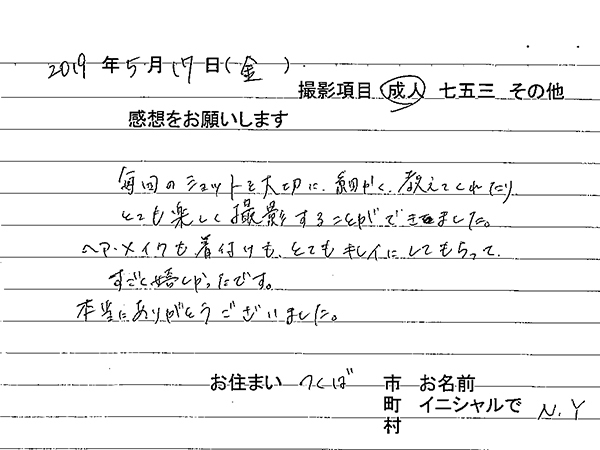 2019 年 5 月 17 日(金)
撮影項目 成人 七五三 その他
感想をお願いします
毎回のショットを大切に、細かく、教えてくれたり
とても楽しく撮影することができました。
ヘア・メイクも着付けも、とてもキレイにしてもらって、
すごく嬉しかったです。
本当にありがとうございました。
お住まい つくば 市 お名前
町 イニシャルで N.Y
村